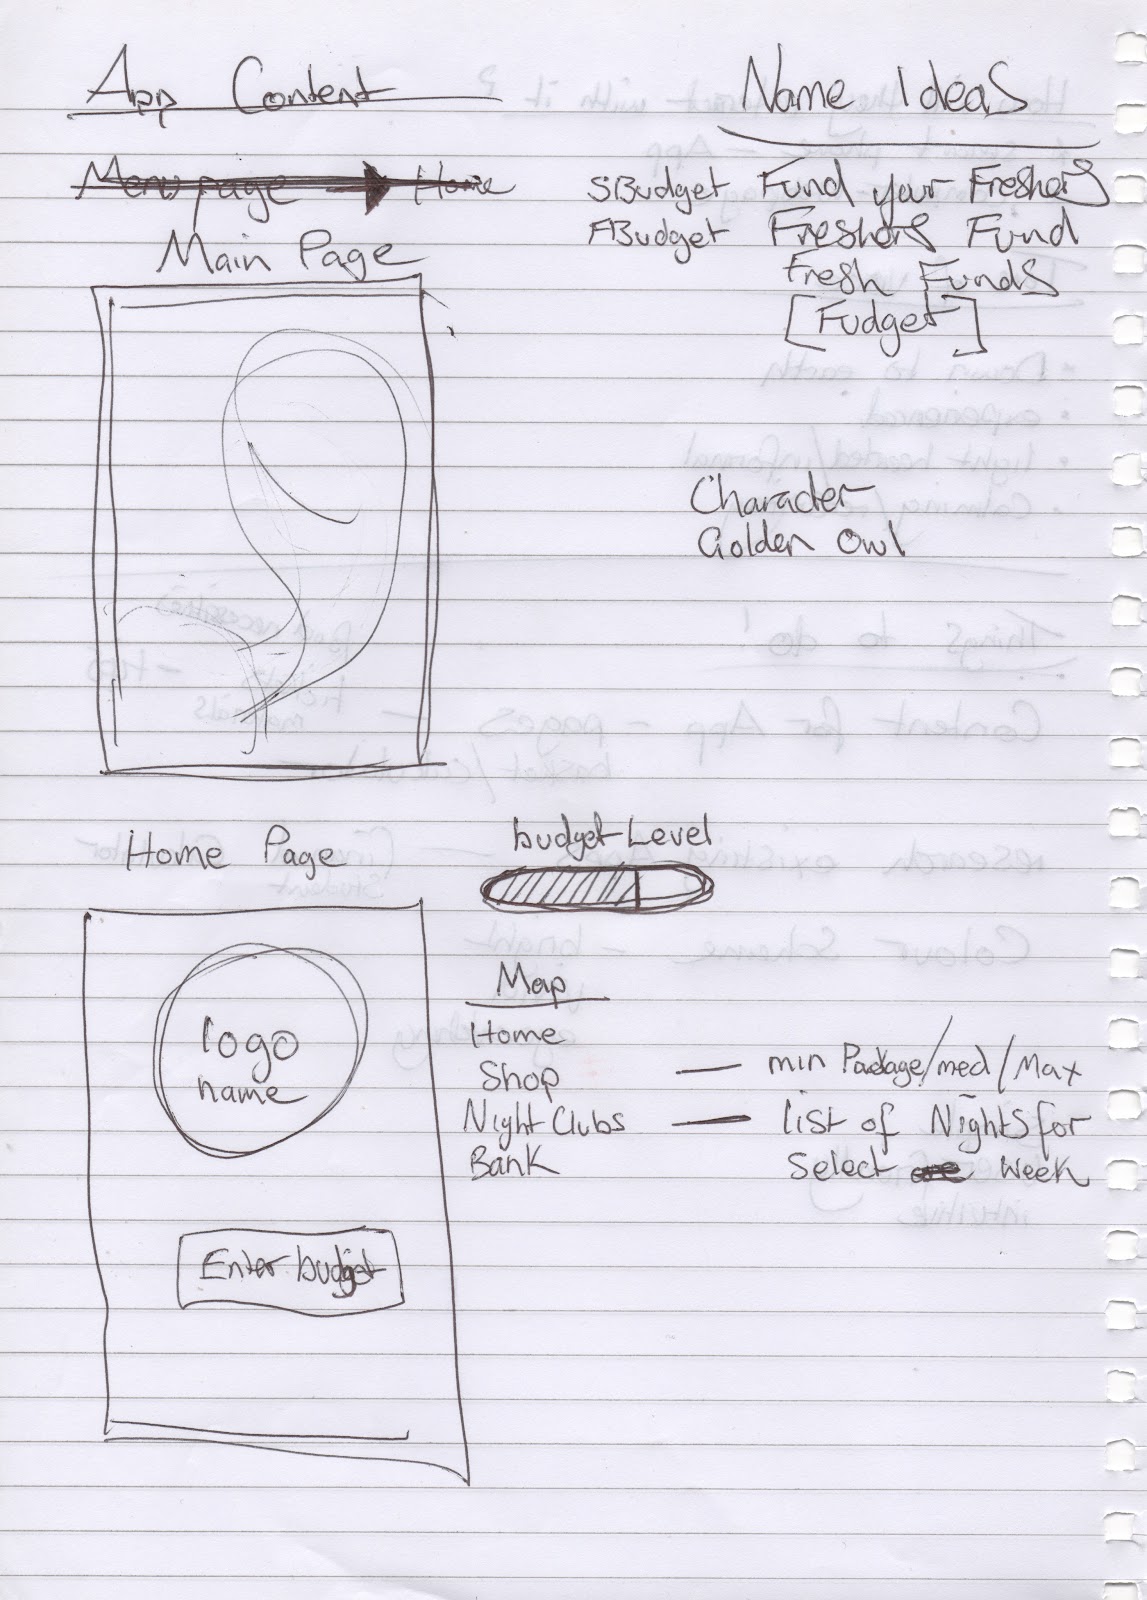 App Content
Name Ideas
Menu page Home
SBudget Fund your Freshers
FBudget Freshers Fund
Fresh Funds
[Fudget]
Main Page
Character
Golden Owl
Home Page
budget Level
logo
name
Enter budget
Map
Home
Shop — min Package/med/Max
Night Clubs — list of Nights for
Bank
Select one week